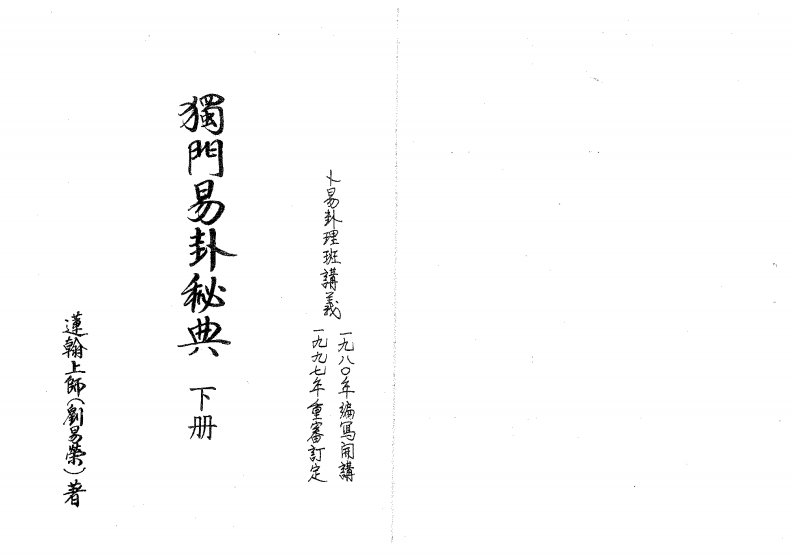 卜易卦理班講義
一九八〇年編寫開講
一九九七年重審訂定
獨門易卦秘典 下册
蓮翰上師(劉易榮)著